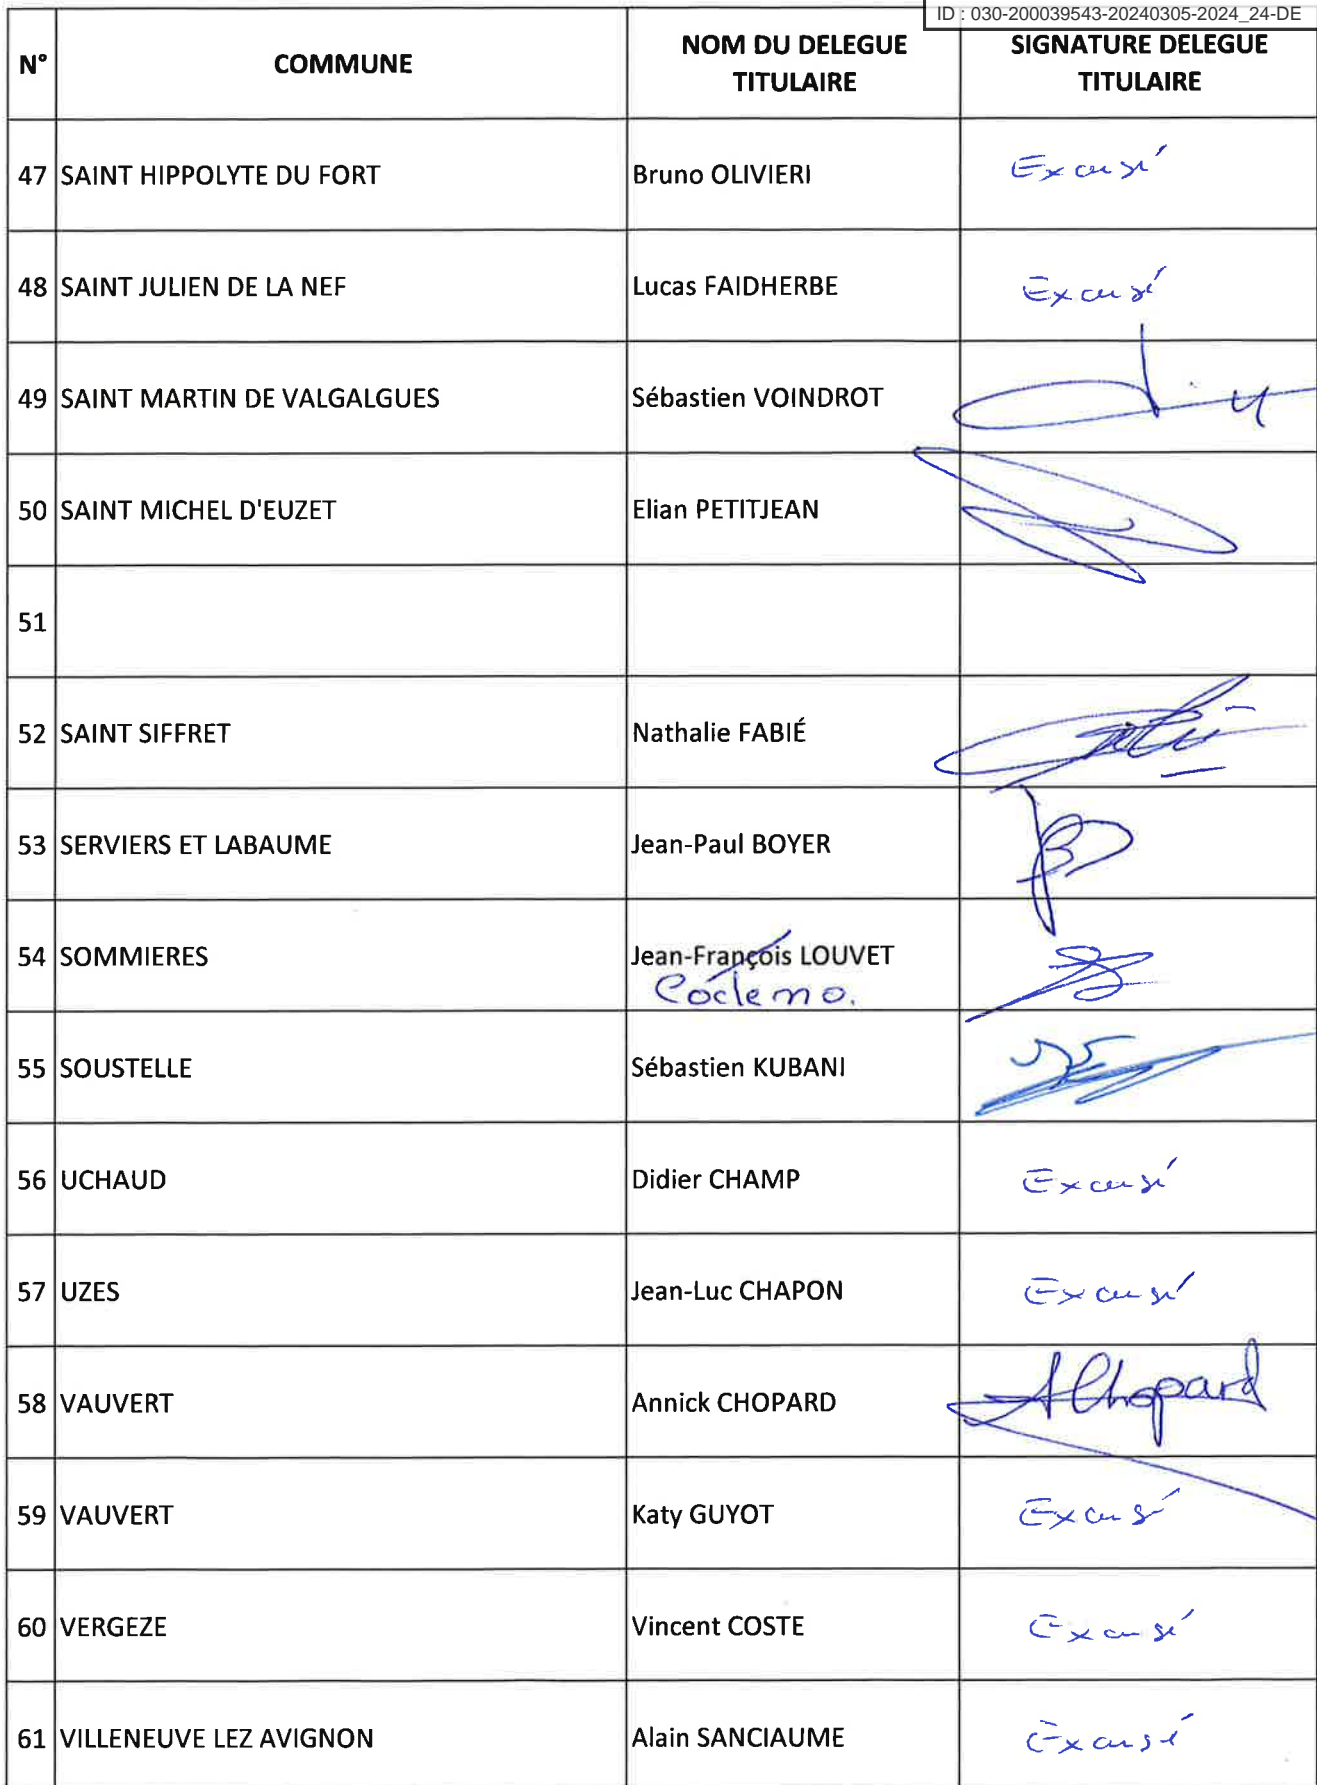 ID : 030-200039543-20240305-2024_24-DE
N° COMMUNE NOM DU DELEGUE TITULAIRE SIGNATURE DELEGUE TITULAIRE
47 SAINT HIPPOLYTE DU FORT Bruno OLIVIERI Excusé
48 SAINT JULIEN DE LA NEF Lucas FAIDHERBE Excusé
49 SAINT MARTIN DE VALGALGUES Sébastien VOINDROT
50 SAINT MICHEL D'EUZET Elian PETITJEAN
51
52 SAINT SIFFRET Nathalie FABIÉ
53 SERVIERS ET LABAUME Jean-Paul BOYER
54 SOMMIERES Jean-François LOUVET
55 SOUSTELLE Sébastien KUBANI
56 UCHAUD Didier CHAMP Excusé
57 UZES Jean-Luc CHAPON Excusé
58 VAUVERT Annick CHOPARD AChopard
59 VAUVERT Katy GUYOT Excusé
60 VERGEZE Vincent COSTE Excusé
61 VILLENEUVE LEZ AVIGNON Alain SANCIAUME Excusé